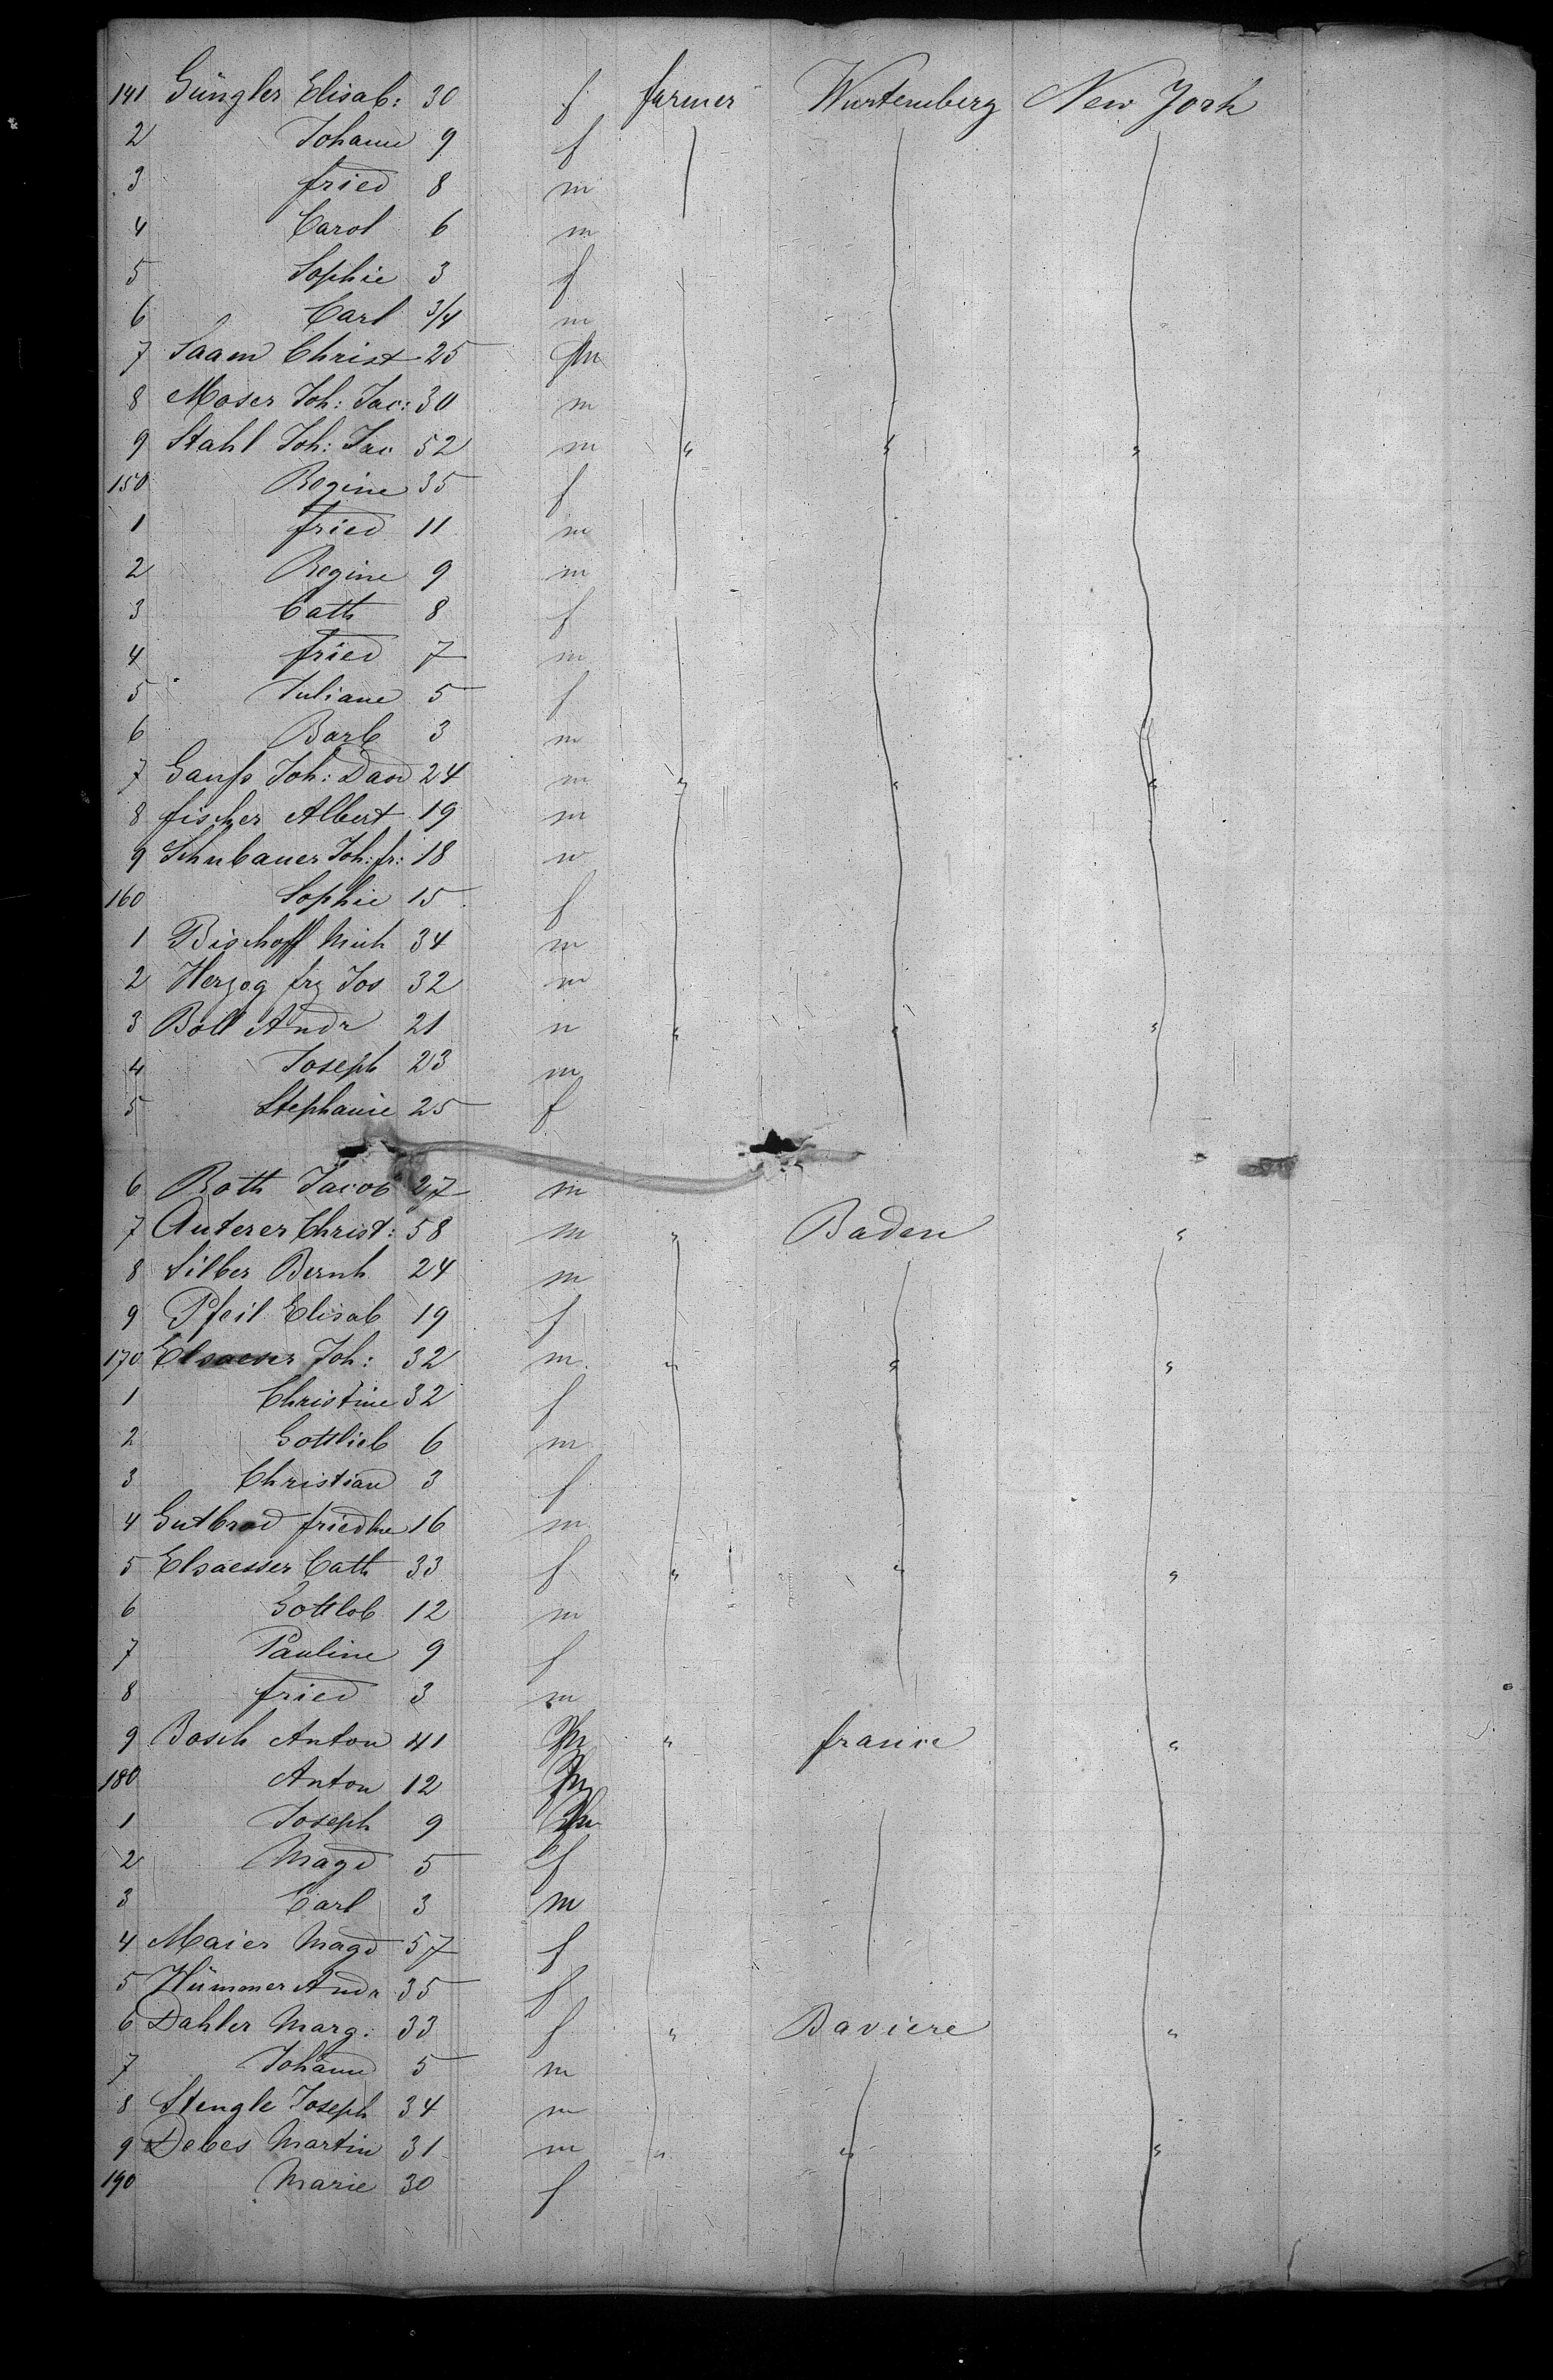 141 Güngler Elisab: 30 f farmer Wurtemberg New York
2 Johann 9 f
3 fried 8 m
4 Carol 6 m
5 Sophie 3 f
6 Carl 3/4 m
7 Saam Christ 25 m
8 Moser Joh: Jac: 30 m
9 Stahl Joh: Jac 52 m " " "
150 Regine 35 f
1 fried 11 m
2 Regine 9 m
3 Cath 8 f
4 fried 7 m
5 Juliane 5 f
6 Barb 3 m
7 Ganſs Joh: Dav 24 m " " "
8 fischer Albert 19 m
9 Schubauer Joh: fr: 18 m
160 Sophie 15 f
1 Bischoff Mich 34 m
2 Herzog frz Jos 32 m
3 Boll Andr 21 m " " "
4 Joseph 23 m
5 Stephanie 25 f
6 Roth Jacob 27 m
7 Auterer Christ: 58 m " Baden "
8 Silber Bernh 24 m
9 Pfeil Elisab 19 f
170 Elsaesser Joh: 32 m " " "
1 Christine 32 f
2 Gottlieb 6 m
3 Christian 3 f
4 Gutbrod friedke 16 m
5 Elsaesser Cath 33 f " " "
6 Gottlob 12 m
7 Pauline 9 f
8 fried 3 m
9 Bosch Anton 41 m " france "
180 Anton 12 m
1 Joseph 9 m
2 Magd 5 f
3 Carl 3 m
4 Maier Magd 57 f
5 Hümmer Andr 35 f
6 Dahler Marg: 33 f " Baviere "
7 Johann 5 m
8 Stengle Joseph 34 m
9 Debes Martin 31 m " " "
190 Marie 30 f